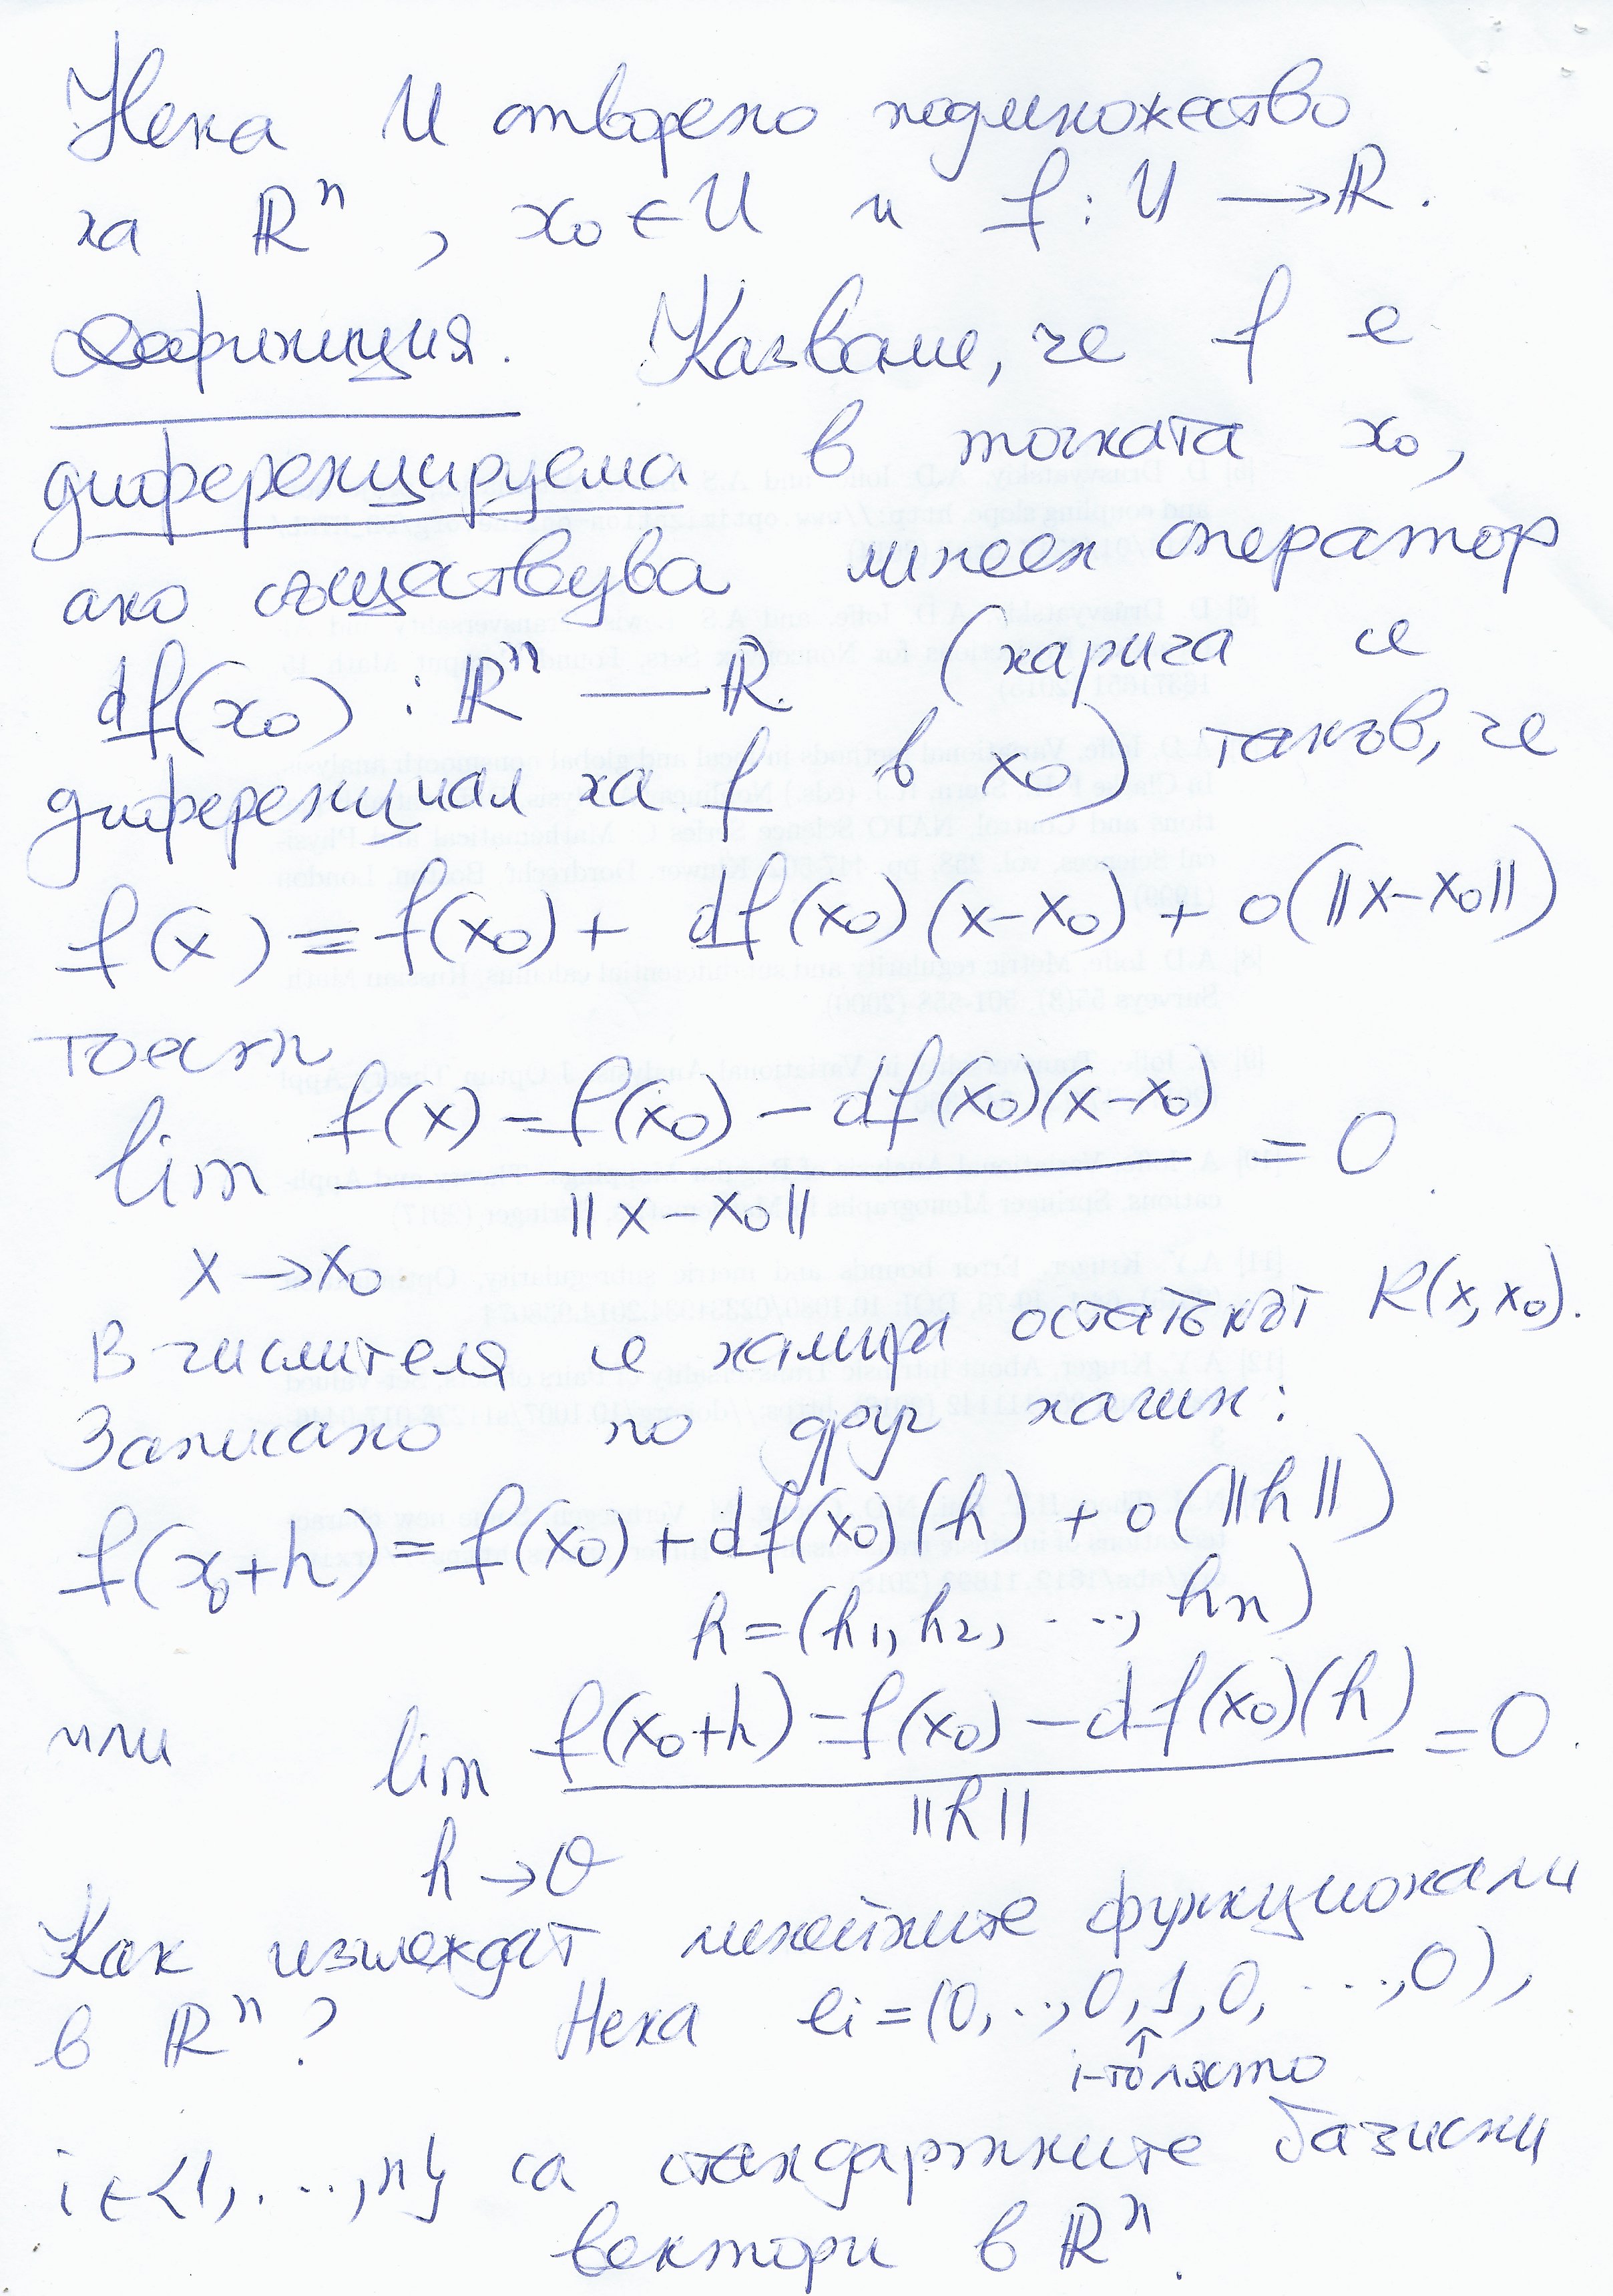 Нека U отворено подмножество
на ℝⁿ, x₀ ∈ U и f : U → ℝ.
Дефиниция. Казваме, че f е
диференцируема в точката x₀,
ако съществува линеен оператор
df(x₀) : ℝⁿ — ℝ (нарича се
диференциал на f в x₀) такъв, че
f(x) = f(x₀) + df(x₀)(x-x₀) + o(||x-x₀||)
тоест
lim f(x) - f(x₀) - df(x₀)(x-x₀) = 0.
||x-x₀||
x → x₀
В числителя се намира остатъкът R(x, x₀).
Записано по друг начин:
f(x₀+h) = f(x₀) + df(x₀)(h) + o(||h||)
h = (h₁, h₂, ..., hₙ)
или lim f(x₀+h) = f(x₀) - df(x₀)(h) = 0.
||h||
h → 0
Как изглеждат линейните функционали
в ℝⁿ? Нека eᵢ = (0, .., 0, 1, 0, ..., 0),
↑
i-то място
i ∈ {1, ..., n} са стандартните базисни
вектори в ℝⁿ.